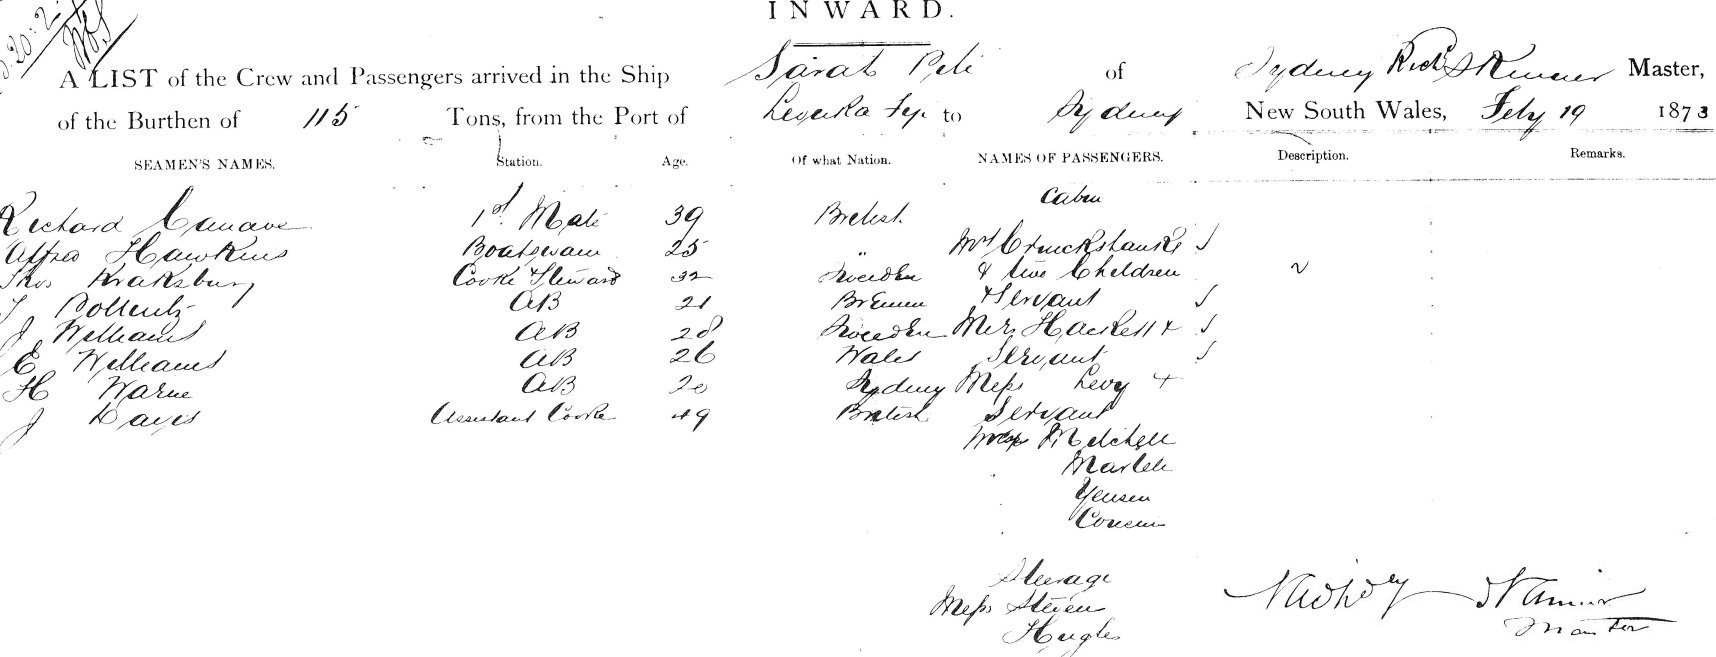 INWARD.
20.2
A LIST of the Crew and Passengers arrived in the Ship Sarah Pile of Sydney Richd Skinner Master,
of the Burthen of 115 Tons, from the Port of Levuka Fiji to Sydney New South Wales, Feby 19 1873
SEAMEN'S NAMES. Station. Age. Of what Nation. NAMES OF PASSENGERS. Description. Remarks.
Cabin
Richard 1st Mate 39 British
Alfred Hawkins Boatswain 25 " Mrs Cruickshanks
Thos Cooke & Steward 32 Sweden & five Children
AB 21 Bremen & Servant
J Williams AB 28 Sweden Mrs Hackett &
E Williams AB 26 Wales Servant
H Warne AB 20 Sydney Mess Levy +
J Davis Assistant Cooke 49 British Servant
Mitchell
Yensen
Steerage
Mess
Hughes
Master